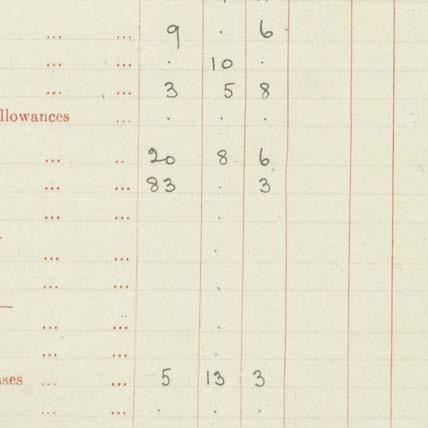 ... ... 9 . 6
... ... . 10 .
... ... 3 5 8
llowances ... . . .
... .. 20 8 6
... ... 83 . 3
... ... .
... ... .
... ... .
... ... .
... ... .
ses ... ... 5 13 3
... ... . . .